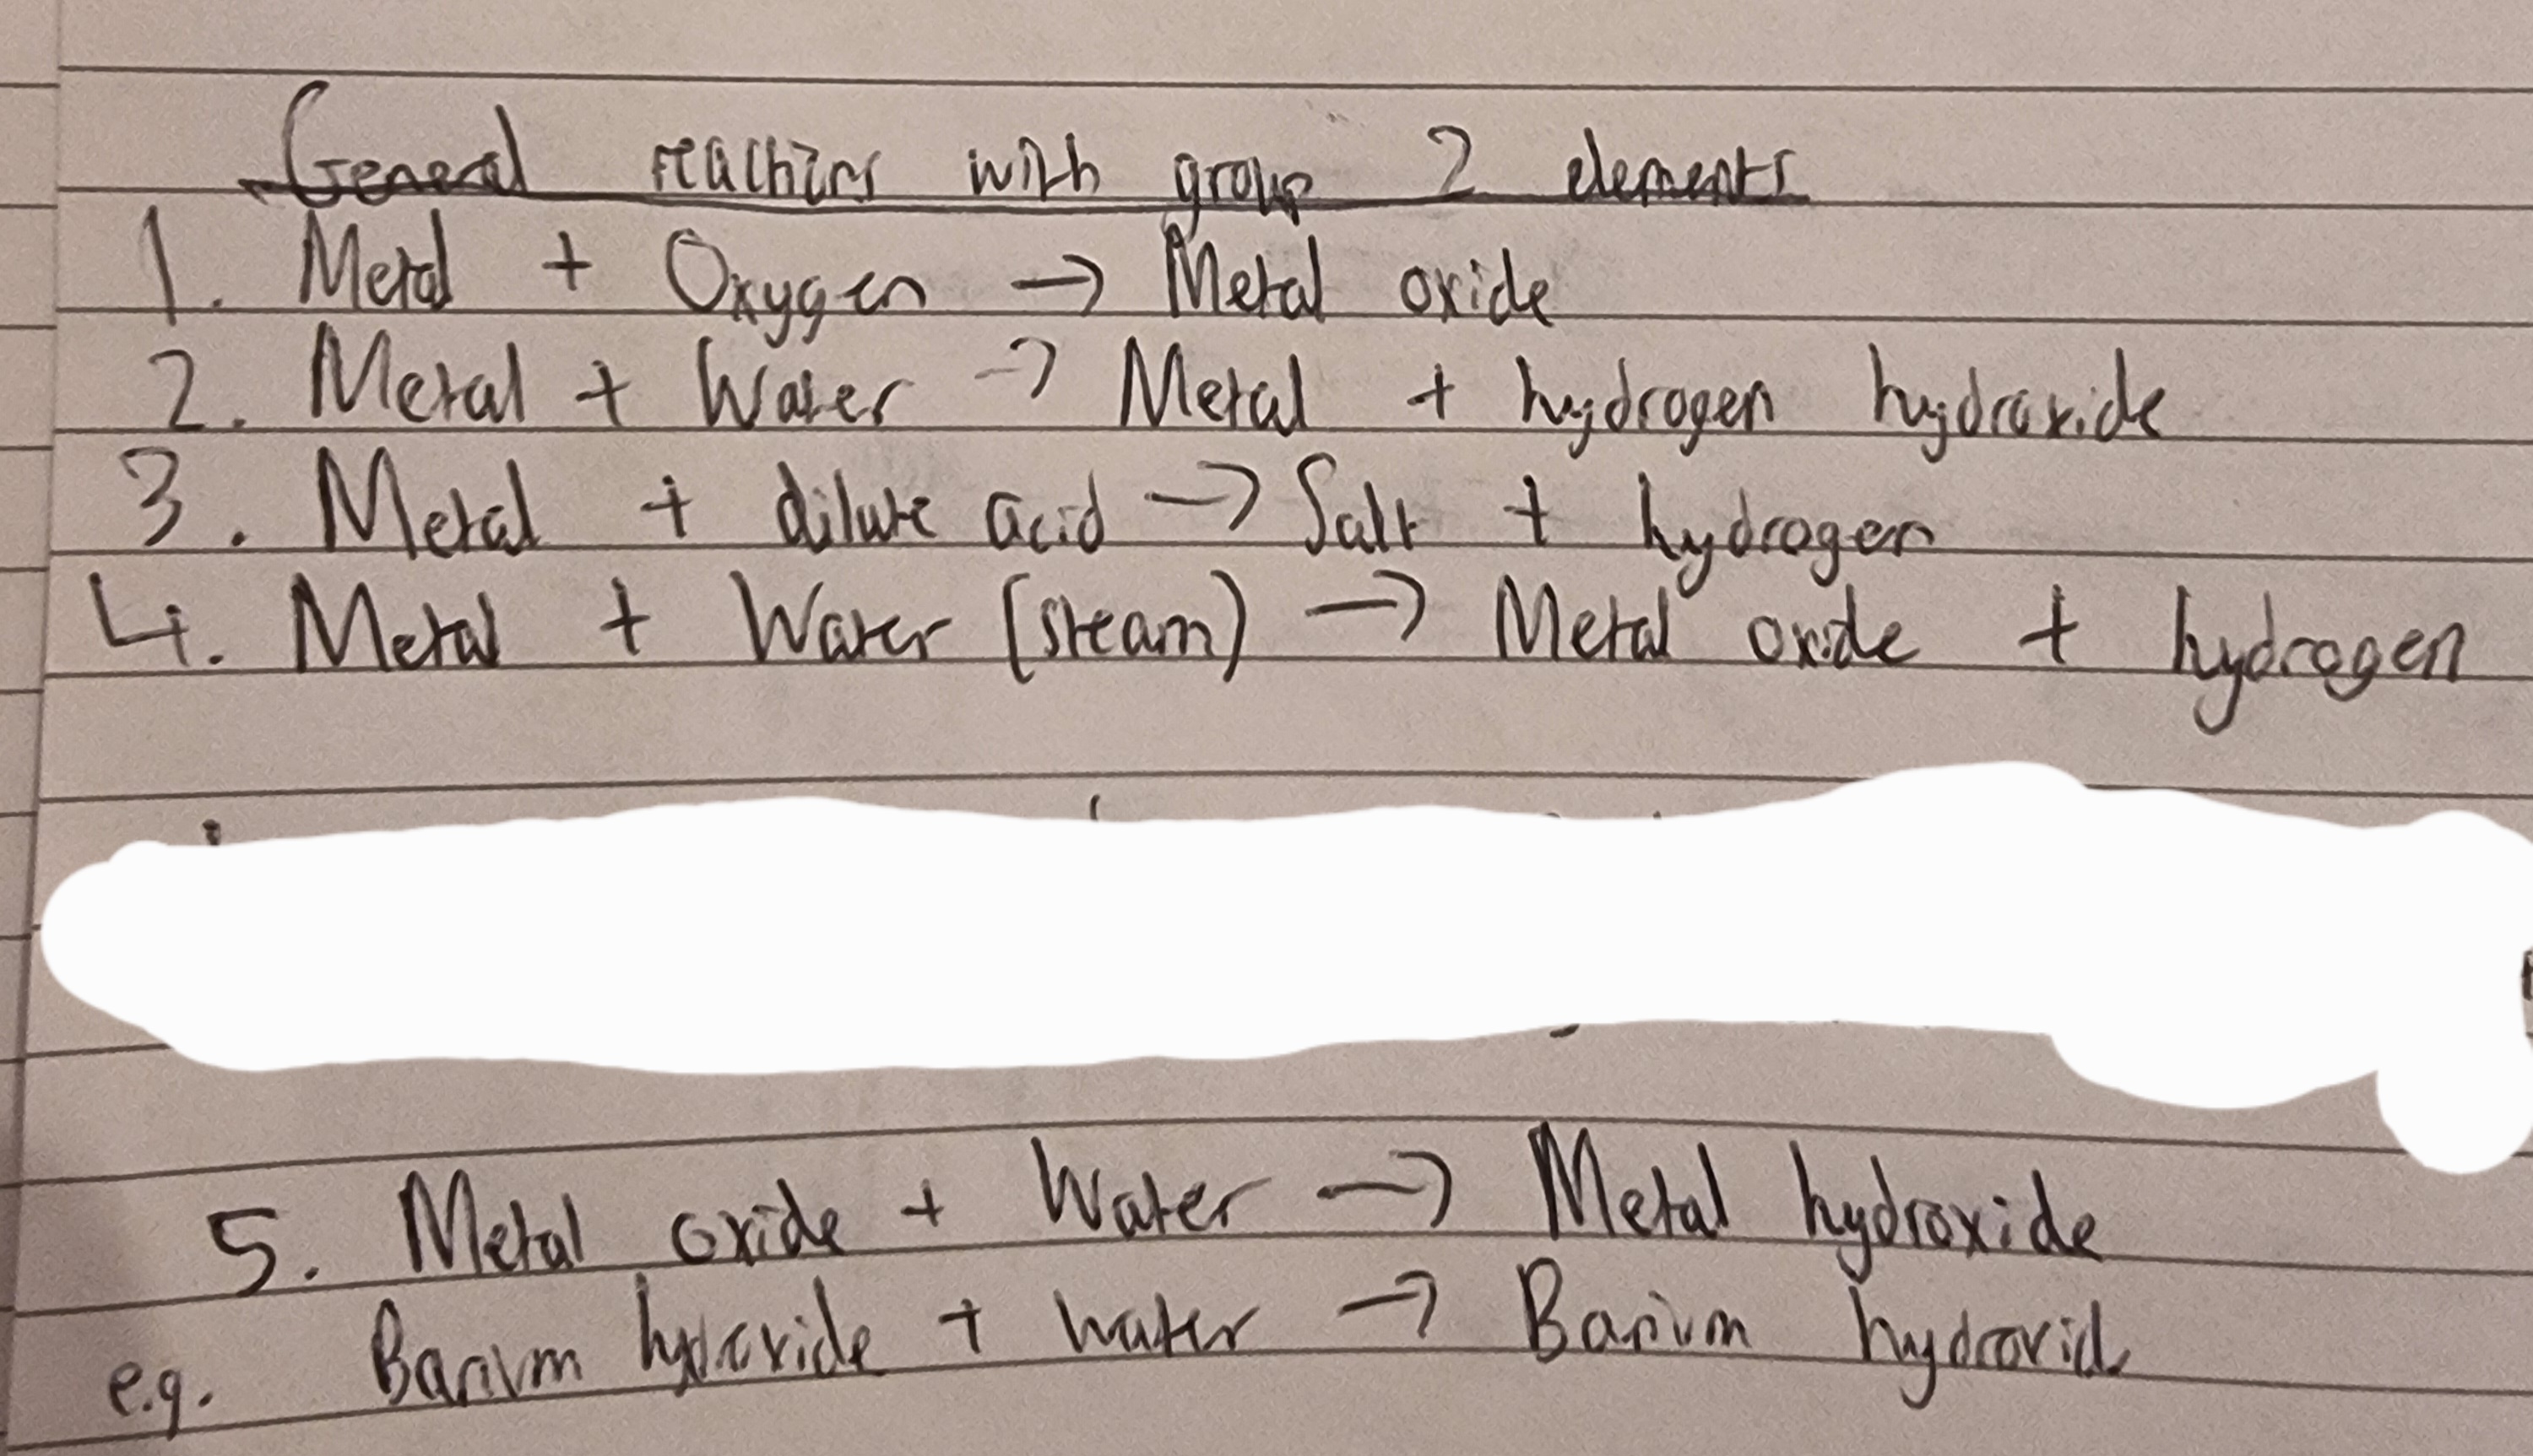 General reactions with group 2 elements
1. Metal + Oxygen → Metal oxide
2. Metal + Water → Metal + hydrogen hydroxide
3. Metal + dilute acid → Salt + hydrogen
4. Metal + Water (steam) → Metal oxide + hydrogen
5. Metal oxide + Water → Metal hydroxide
e.g. Barium hydroxide + water → Barium hydroxide